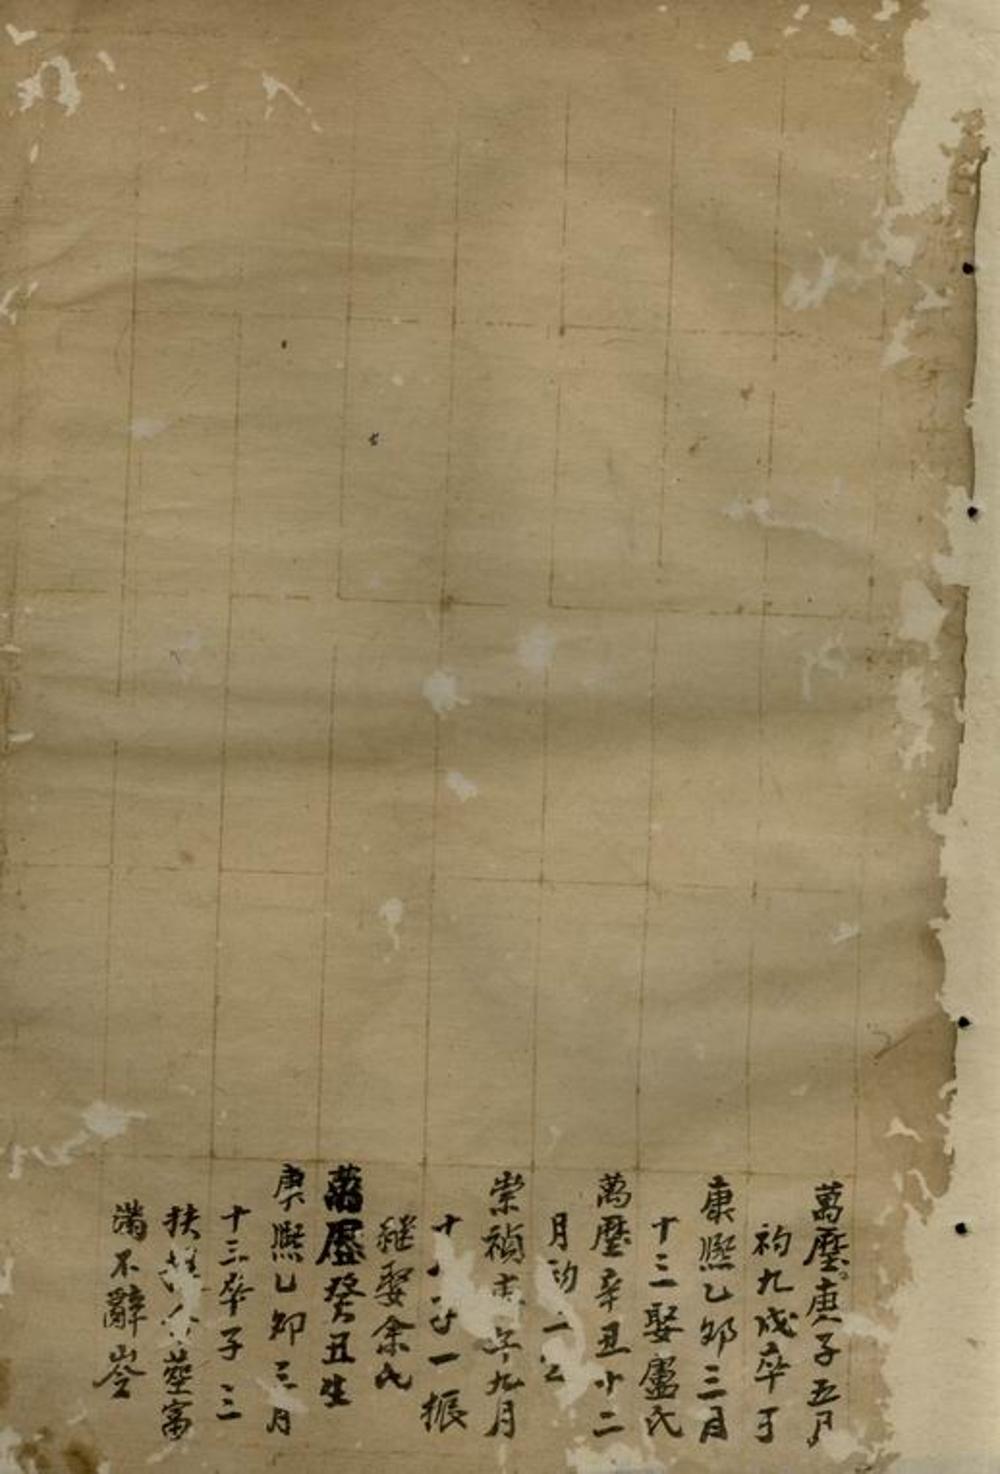 萬歷庚子五月
初九戌卒于
康熈乙卯三月
十三娶盧氏
萬歷辛丑十二
月初二
崇禎 午九月
十 一振
継娶余氏
萬歷癸丑生
康熈乙卯三月
十三卒子三
扶 葬富
滿不辭岺